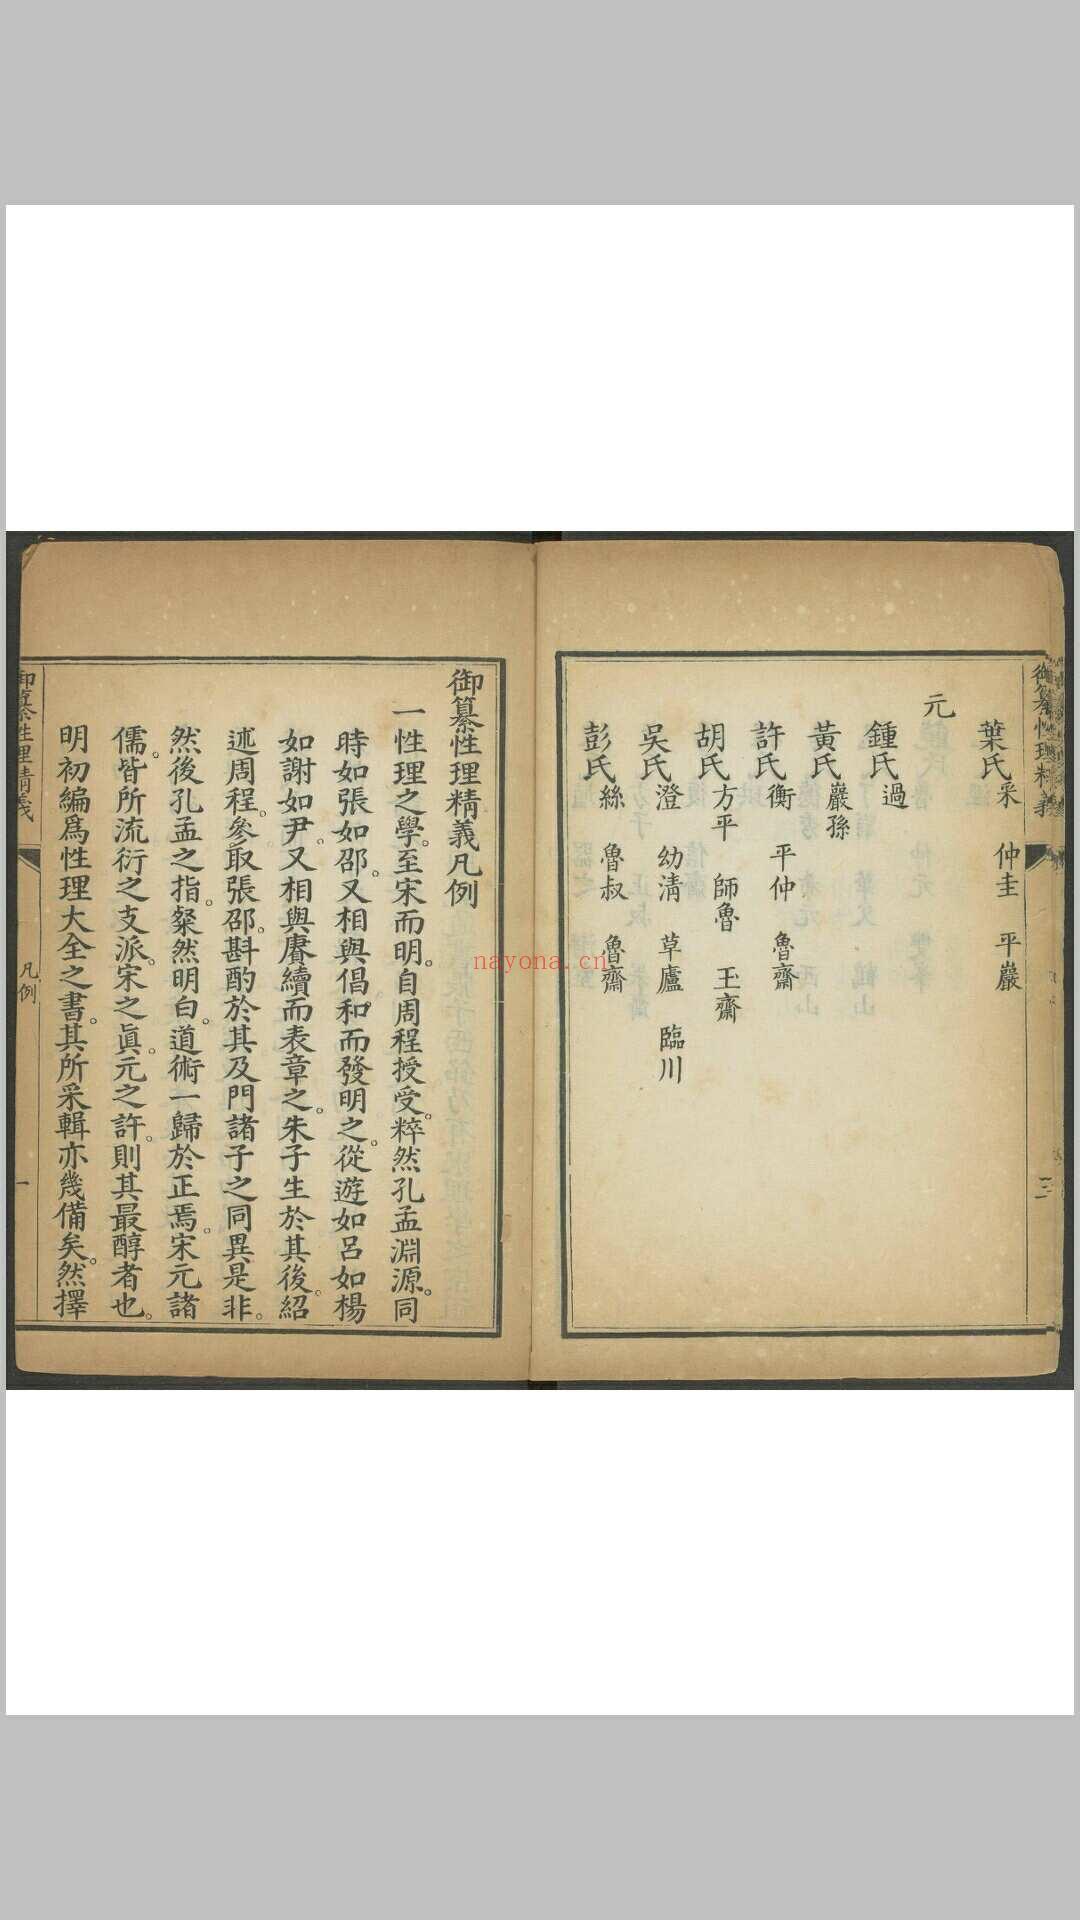 御纂性理精義
三
葉氏采 仲圭 平巖
元
鍾氏過
黃氏巖孫
許氏衡 平仲 魯齋
胡氏方平 師魯 玉齋
吳氏澄 幼清 草廬 臨川
彭氏絲 魯叔 魯齋
御纂性理精義凡例
一性理之學。至宋而明。自周程授受。粹然孔孟淵源。同
時如張如邵。又相與倡和而發明之。從遊如呂如楊
如謝如尹。又相與賡續而表章之。朱子生於其後。紹
述周程。參取張邵。斟酌於其及門諸子之同異是非。
然後孔孟之指。粲然明白。道術一歸於正焉。宋元諸
儒。皆所流衍之支派。宋之眞。元之許。則其最醇者也。
明初編爲性理大全之書。其所采輯亦幾備矣。然擇
御纂性理精義
凡例
一
nayona.cn